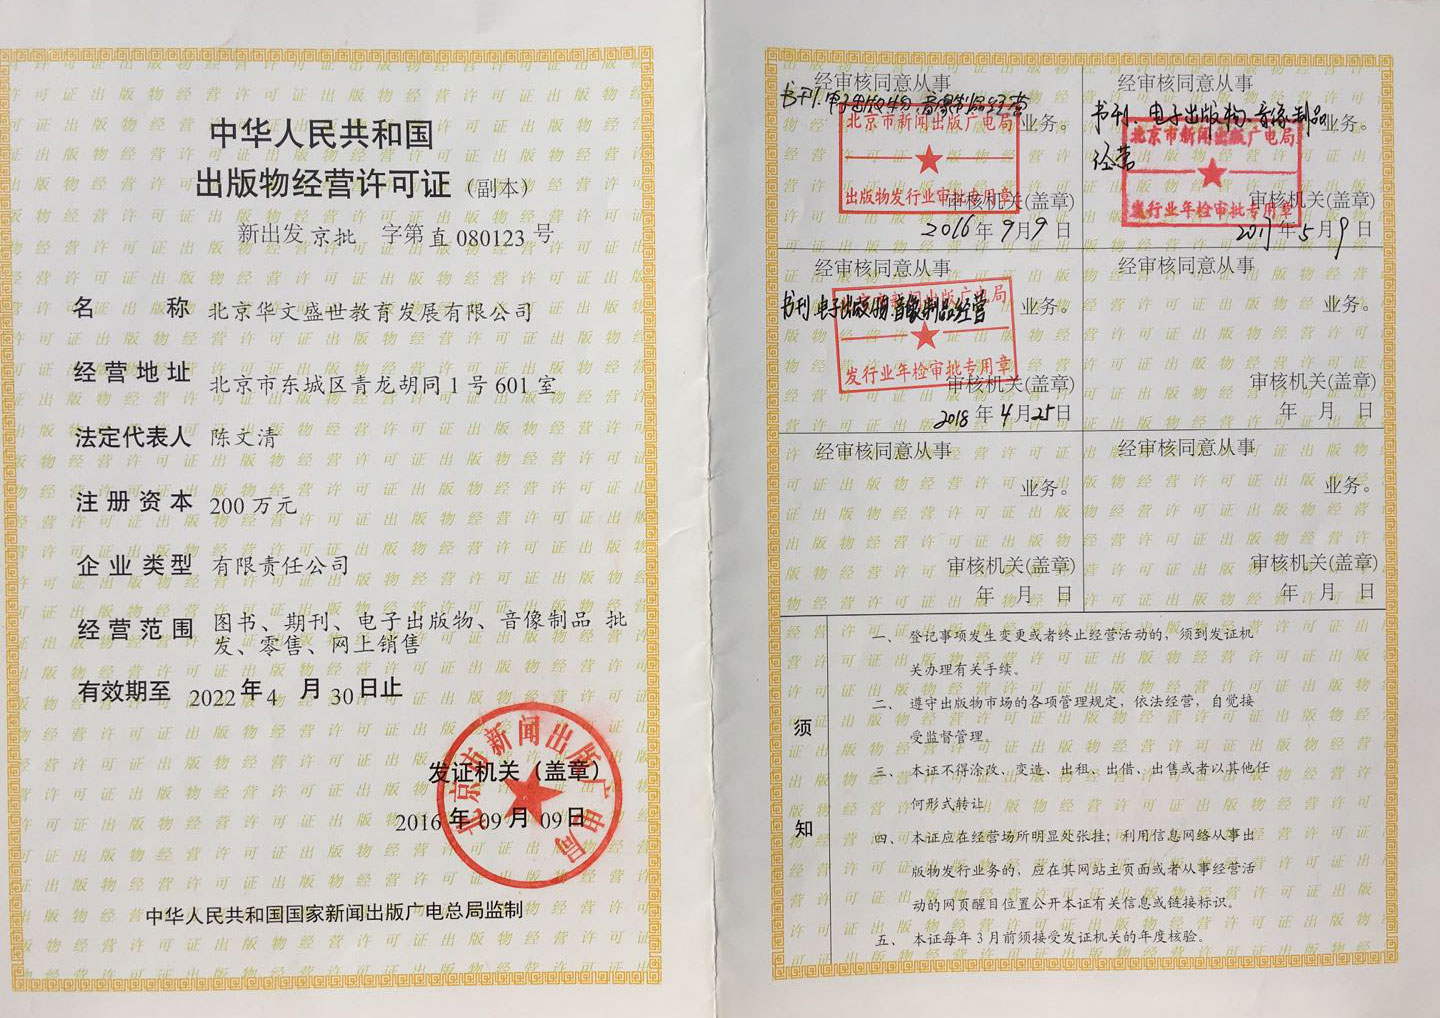 中华人民共和国
出版物经营许可证（副本）
新出发 京批 字第 直 080123 号
名 称 北京华文盛世教育发展有限公司
经营地址 北京市东城区青龙胡同1号601室
法定代表人 陈文清
注册资本 200万元
企业类型 有限责任公司
经营范围 图书、期刊、电子出版物、音像制品 批
发、零售、网上销售
有效期至 2022年4月30日止
发证机关（盖章）
北京市新闻出版广电局
2016年09月09日
中华人民共和国国家新闻出版广电总局监制
经审核同意从事
书刊、电子出版物、音像制品经营
业务。
北京市新闻出版广电局
出版物发行业审批专用章
审核机关(盖章)
2016年9月9日
经审核同意从事
书刊、电子出版物、音像制品
经营
业务。
北京市新闻出版广电局
发行业年检审批专用章
审核机关(盖章)
2017年5月9日
经审核同意从事
书刊电子出版物、音像制品经营
业务。
新闻出版广电局
发行业年检审批专用章
审核机关(盖章)
2018年4月25日
经审核同意从事
业务。
审核机关(盖章)
年 月 日
经审核同意从事
业务。
审核机关(盖章)
年 月 日
经审核同意从事
业务。
审核机关(盖章)
年 月 日
须知
一、登记事项发生变更或者终止经营活动的，须到发证机
关办理有关手续。
二、遵守出版物市场的各项管理规定，依法经营，自觉接
受监督管理。
三、本证不得涂改、变造、出租、出借、出售或者以其他任
何形式转让
四、本证应在经营场所明显处张挂；利用信息网络从事出
版物发行业务的，应在其网站主页面或者从事经营活
动的网页醒目位置公开本证有关信息或链接标识。
五、本证每年3月前须接受发证机关的年度核验。